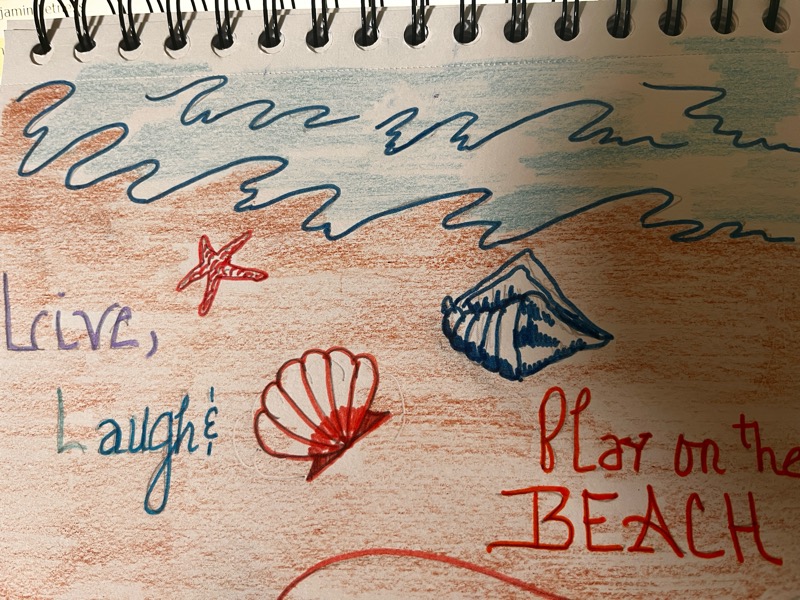 Live,
Laugh &
Play on the
BEACH